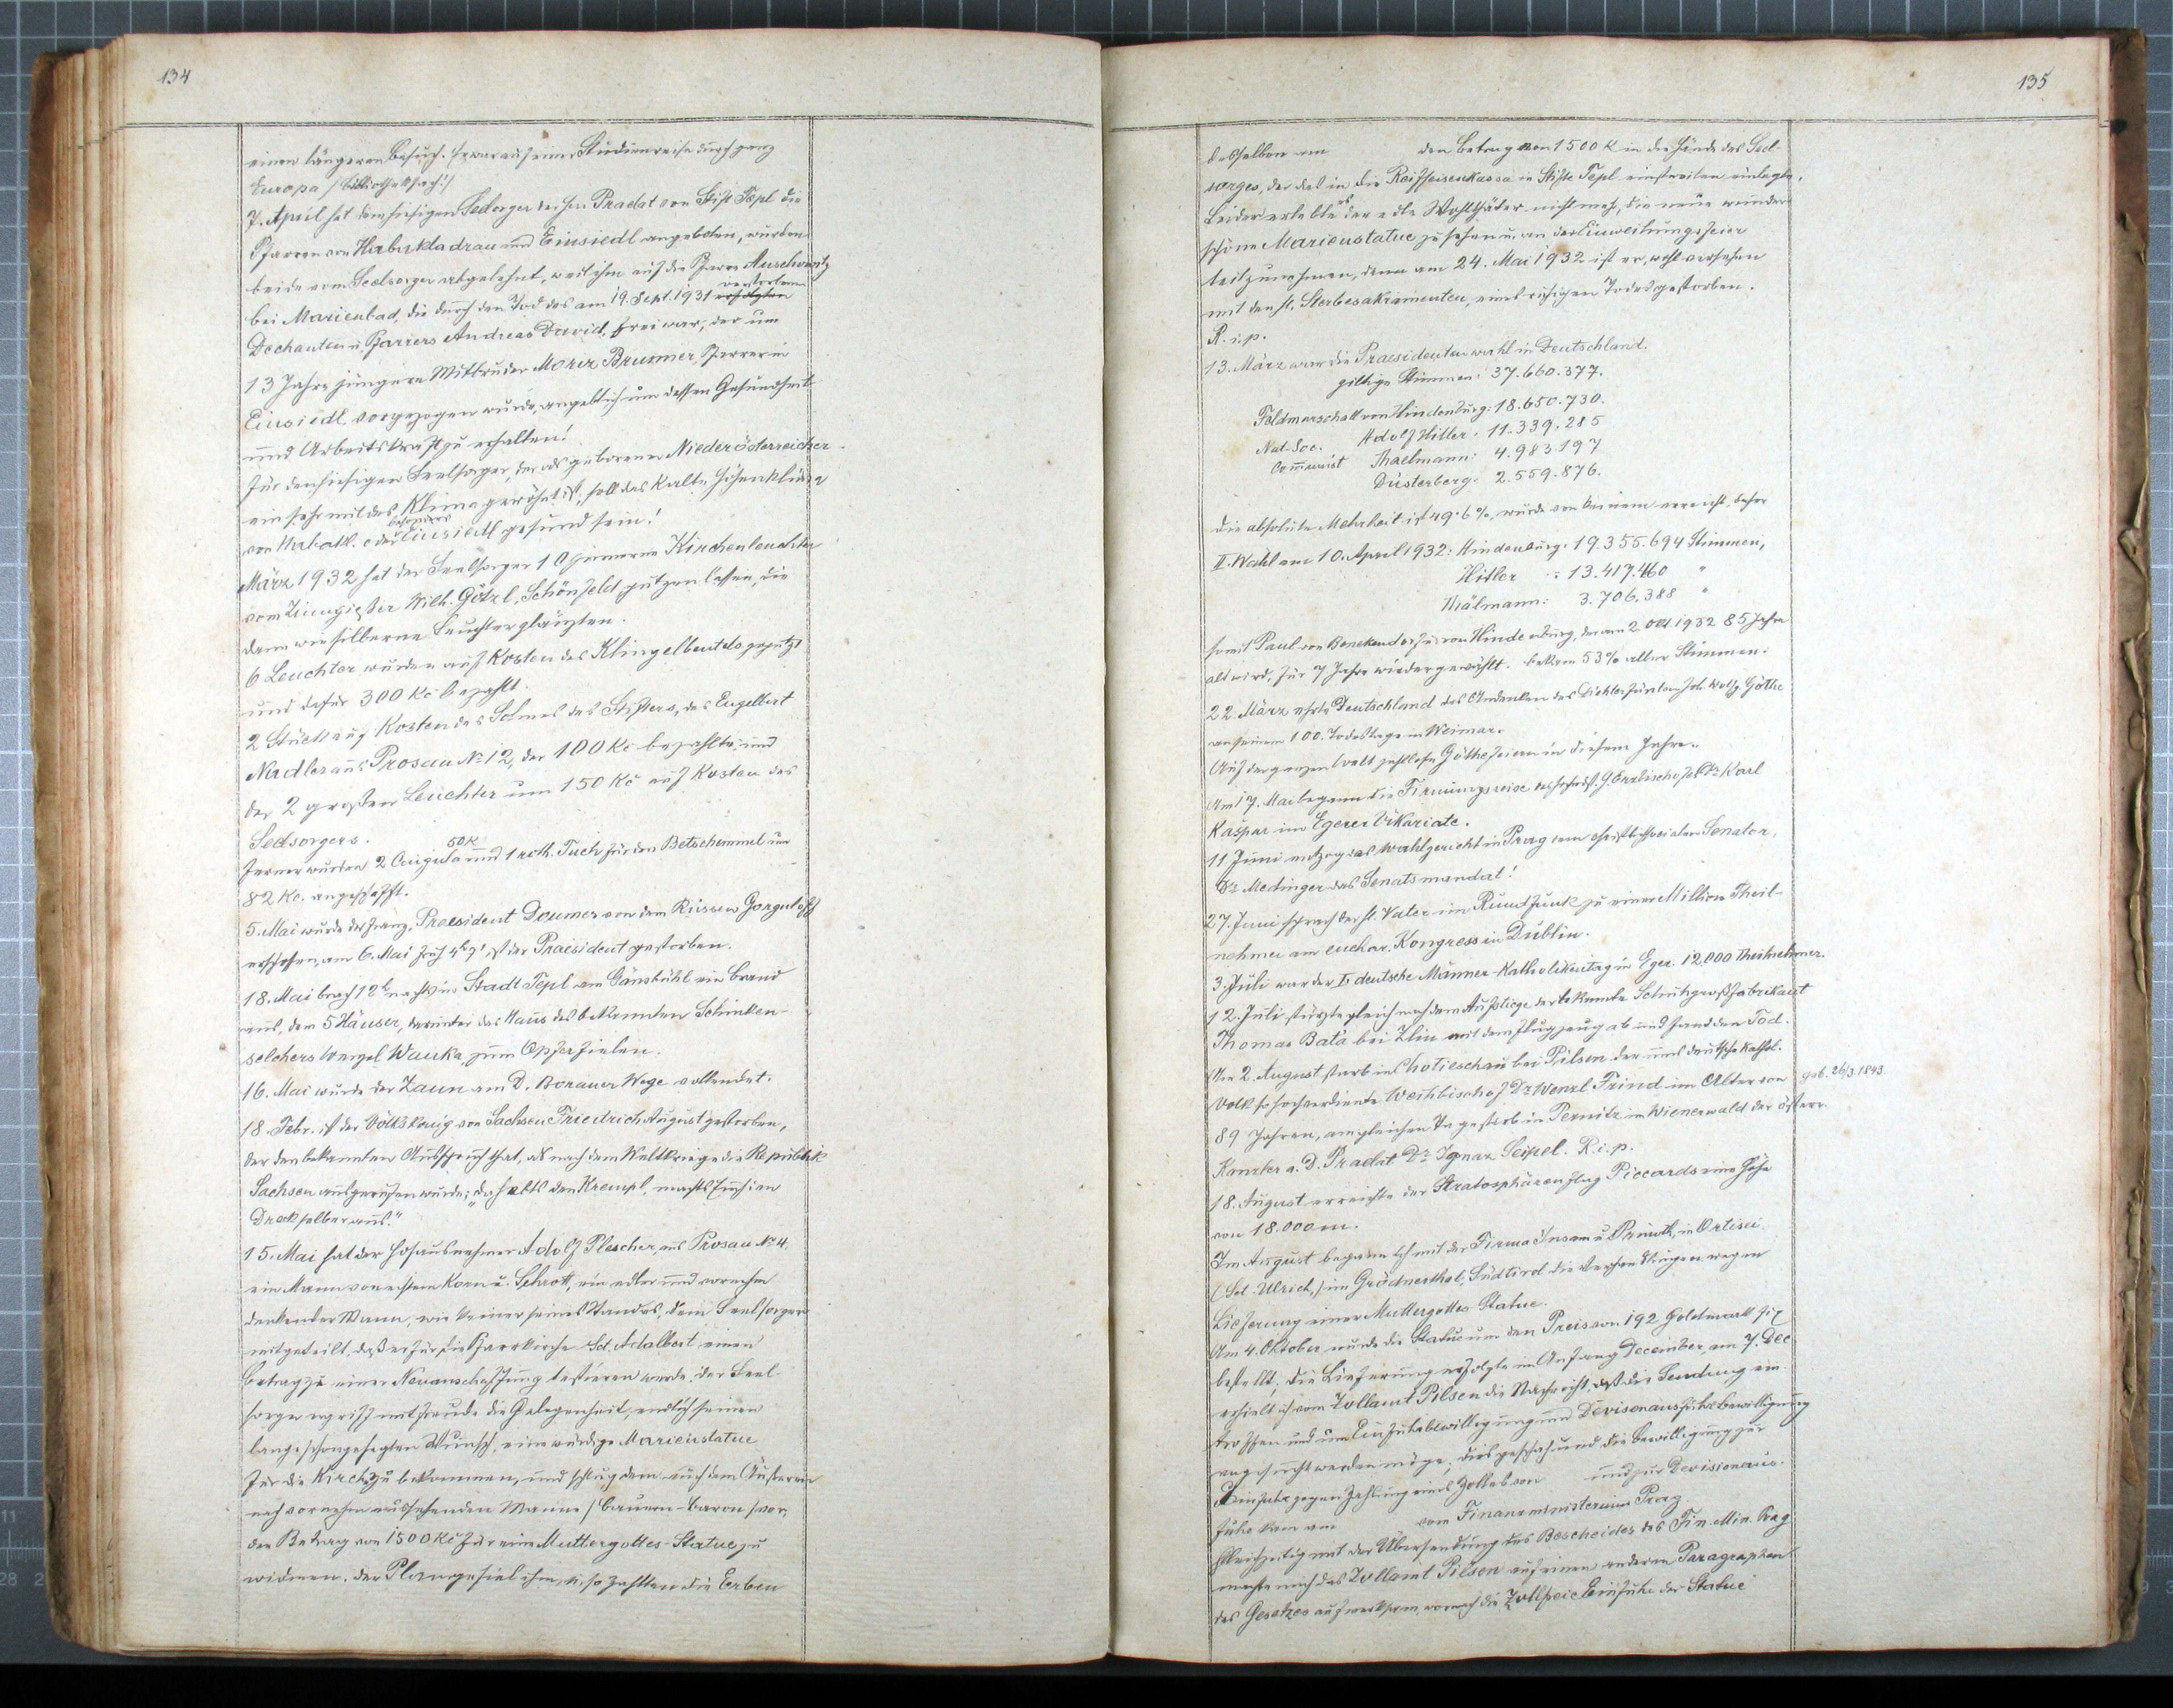 134
einen längeren Besuch. Er war auf einer Studienreise durch ganz
Europa /Bibliothekfach!/
7. April hat dem hiesigen Seelsorger der Herr Praelat von Stift Tepl die
Pfarren von Habakladrau und Einsiedl angeboten, wurden
beide vom Seelsorger abgelehnt, weil ihm auf die Pfarre Auschowitz
bei Marienbad, die durch den Tod des am 19. Sept. 1931 verstorbenen
Dechanten u. Pfarrers Andreas David, frei war, der um
13 Jahre jüngere Mitbruder Moriz Brunner, Pfarrer in
Einsiedl vorgezogen wurde, angeblich um dessen Gesundheit
und Arbeitskraft zu erhalten!
Für den hiesigen Seelsorger, der als geborener Niederösterreicher
ein sehr mildes Klima gewöhnt ist, soll das kalte Höhenklima
von Habakl. oder besonders Einsiedl gesund sein!
März 1932 hat der Seelsorger 10 zinnerne Kirchenleuchter
vom Zinngießer Wilh. Götzl, Schönfeld, putzen lassen, die
dann wie silberne Leuchter glänzten.
6 Leuchter wurden auf Kosten des Klingelbeutels geputzt
und dafür 300 Kč bezahlt.
2 Stück auf Kosten des Sohnes des Stifters, des Engelbert
Nadler aus Prosau No 12, der 100 Kč bezahlte und
der 2 großen Leuchter um 150 Kč auf Kosten des
Seelsorgers.
Ferner wurden 2 Cingula 50 K und 1 roth. Tuch für den Betschemmel um
82 Kc. angeschafft.
5. Mai wurde der franz. Praesident Doumer von dem Russen Gorguloff
erschossen, am 6. Mai früh 4h 9' ist der Praesident gestorben.
18. Mai brach 12h nachts in Stadt Tepl am Gänsbühl ein Brand
aus, dem 5 Häuser, darunter das Haus des bekannten Schinken-
selchers Wenzel Wanka, zum Opfer fielen.
16. Mai wurde der Zaun am D. Borauer Wege vollendet.
18. Febr. ist der Volkskönig von Sachsen Friedrich August gestorben,
der den bekannten Ausspruch that, als nach dem Weltkriege die Republik
Sachsen ausgerufen wurde: "Da habts den Krempl, machts Euch ien
Dreck selber aus."
15. Mai hat der Hofausnehmer Adolf Plescher aus Prosau No 4,
ein Mann von echtem Korn u. Schrott, ein edler und vornehm
denkender Mann, wie keiner seines Standes, dem Seelsorger
mitgeteilt, daß er für die Pfarrkirche Sct. Adalbert einen
Betrag zu einer Neuanschaffung testieren werde, der Seel-
sorger ergriff mit Freude die Gelegenheit, endlich seinen
lange schon gehegten Wunsch, eine würdige Marienstatue
für die Kirche zu bekommen, und schlug dem auch dem Äußeren
nach vornehm aussehenden Manne /Bauern-Baron/ vor,
den Betrag von 1500 Kč für eine Muttergottes-Statue zu
widmen. Der Plan gefiel ihm, u. so zahlten die Erben
135
desselben am den Betrag von 1500 K in die Hände des Seel-
sorges, der das in die Raiffeisenkassa in Stifte Tepl einstweilen einlegte.
Leider erlebte es der edle Wohlthäter nicht mehr, die neue wunder
schöne Marienstatue zu sehen u. an der Einweihungsfeier
teilzunehmen, denn am 24. Mai 1932 ist er, wohl versehen
mit den hl. Sterbesakramenten, eines ruhigen Todes gestorben.
R. i. p.
13. März war die Praesidentenwahl in Deutschland.
giltige Stimmen: 37.660.377.
Feldmarschall von Hindenburg: 18.650.730.
Nat-Soc. Adolf Hitler: 11.339.285
Com̅unist Thaelmann: 4.983.197
Düsterberg: 2.559.876.
Die absolute Mehrheit ist 49.6%, wurde von keinem erreicht, daher
II. Wahl am 10. April 1932: Hindenburg: 19.355.694 Stimmen,
Hitler : 13.417.460 "
Thälmann: 3.706.388 "
somit Paul von Benekendorf u. von Hindenburg, der am 2. Okt. 1932 85 Jahre
alt wird, für 7 Jahre wiedergewählt. Bekam 53% aller Stimmen.
22. März ehrte Deutschland das Andenken des Dichterfürsten Joh. Wolfg. Göthe
an seinem 100. Todestage in Weimar.
Auf der ganzen Welt zahllose Göthefeiern in diesem Jahre.
Am 17. Mai begann die Firmungsreise des hochwst. H. Erzbischofes Dr Karl
Kašpar im Egerer Vikariate.
11. Juni entzog das Wahlgericht in Prag dem christlichsocialen Senator,
Dr Medinger das Senatsmandat!
27. Juni sprach der hl. Vater im Rundfunk zu einer Million Theil-
nehmer am euchar. Kongress in Dublin.
3. Juli war der I. deutsche Männer-Katholikentag in Eger. 12.000 Theilnehmer.
12. Juli stürzte gleich nach dem Aufstiege der bekannte Schuhgroßfabrikant
Thomas Bat'a bei Zlin mit dem Flugzeug ab und fand den Tod.
Am 2. August starb in Chotieschau bei Pilsen der ums deutsche kathol.
Volk so hochverdiente Weihbischof Dr Wenzl Frind im Alter von
geb. 26/9. 1843
89 Jahren, am gleichen Tage starb in Pernitz im Wienerwald der österr.
Kanzler a. D. Praelat Dr Ignaz Seipel. R. i. p.
18. August erreichte der Stratosphärenflug Piccards eine Höhe
von 18.000 m.
Im August begann ich mit der Firma Insam u. Prinoth, in Ortisei
(Sct. Ulrich,) im Grödnerthal, Südtirol die Verhandlungen wegen
Lieferung einer Muttergottes-Statue.
Am 4. Oktober wurde die Statue um den Preis von 192 Goldmark fix
bestellt, die Lieferung erfolgte im Anfang December, am 7. Dec
erhielt ich vom Zollamt Pilsen die Nachricht, daß die Sendung ein-
troffen und um Einfuhrbewilligung und Devisenausfuhrbewilligung
angesucht werden möge, dies geschah und die Bewilligung zur
Einfuhr gegen Zahlung eines Zolles von und zur Devisenaus-
fuhr kam am vom Finanzministerium Prag
Gleichzeitig mit der Übersendung des Bescheides des Fin. Min. Prag
machte mich das Zollamt Pilsen auf einen anderen Paragraphen
des Gesetzes aufmerksam, wornach die Zollfreie Einfuhr der Statue